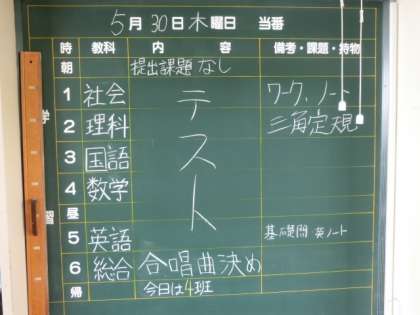 5月30日木曜日 当番
時 教科 内容 備考・課題・持物
朝 提出課題 なし
1 社会 ワーク、ノート
2 理科 三角定規
3 国語
4 数学
テスト
昼
5 英語 基礎問 英ノート
6 総合 合唱曲決め
帰 今日は4班
学習